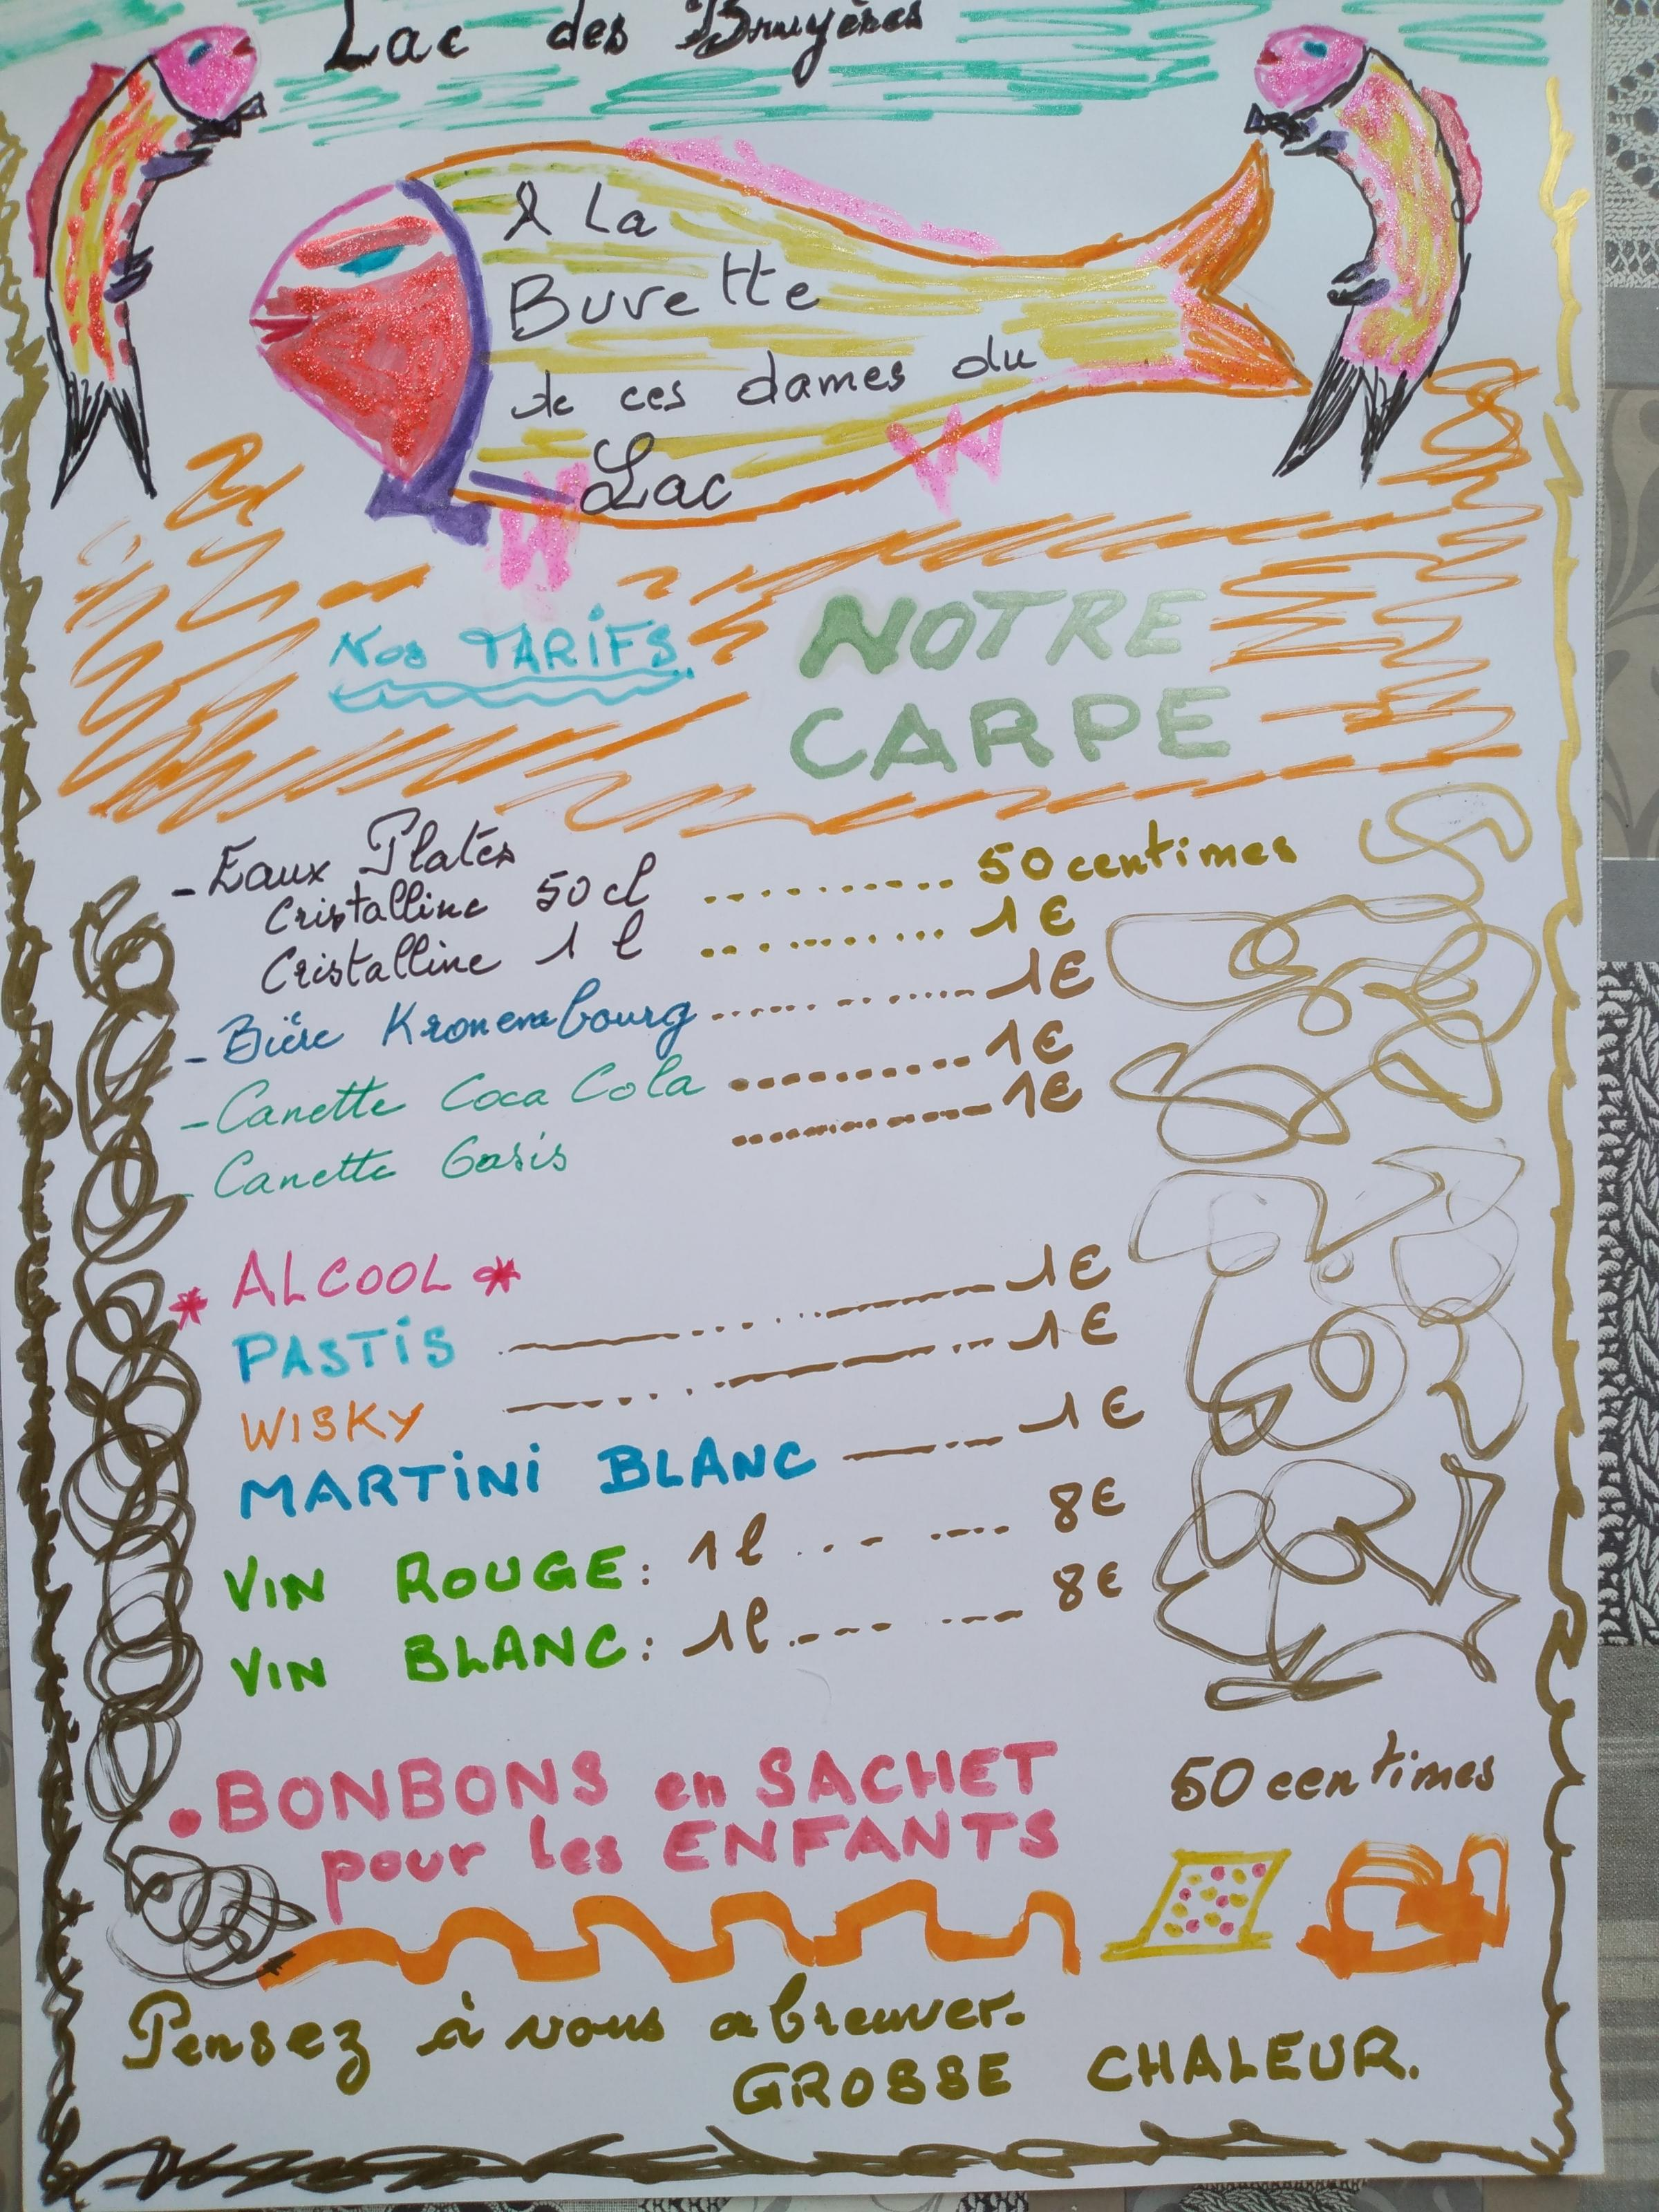 Lac des Bruyères
A La
Buvette
de ces dames du
Lac
Nos TARIFS.
NOTRE
CARPE
- Eaux Plates
Cristalline 50 cl .......... 50 centimes
Cristalline 1 l .......... 1€
- Bière Kronembourg .......... 1€
- Canette Coca Cola .......... 1€
- Canette Oasis .......... 1€
* ALCOOL *
PASTIS .......... 1€
WISKY .......... 1€
MARTINI BLANC .......... 1€
VIN ROUGE : 1l .......... 8€
VIN BLANC : 1l .......... 8€
. BONBONS en SACHET 50 centimes
pour les ENFANTS
Pensez à vous abreuver.
GROSSE CHALEUR.